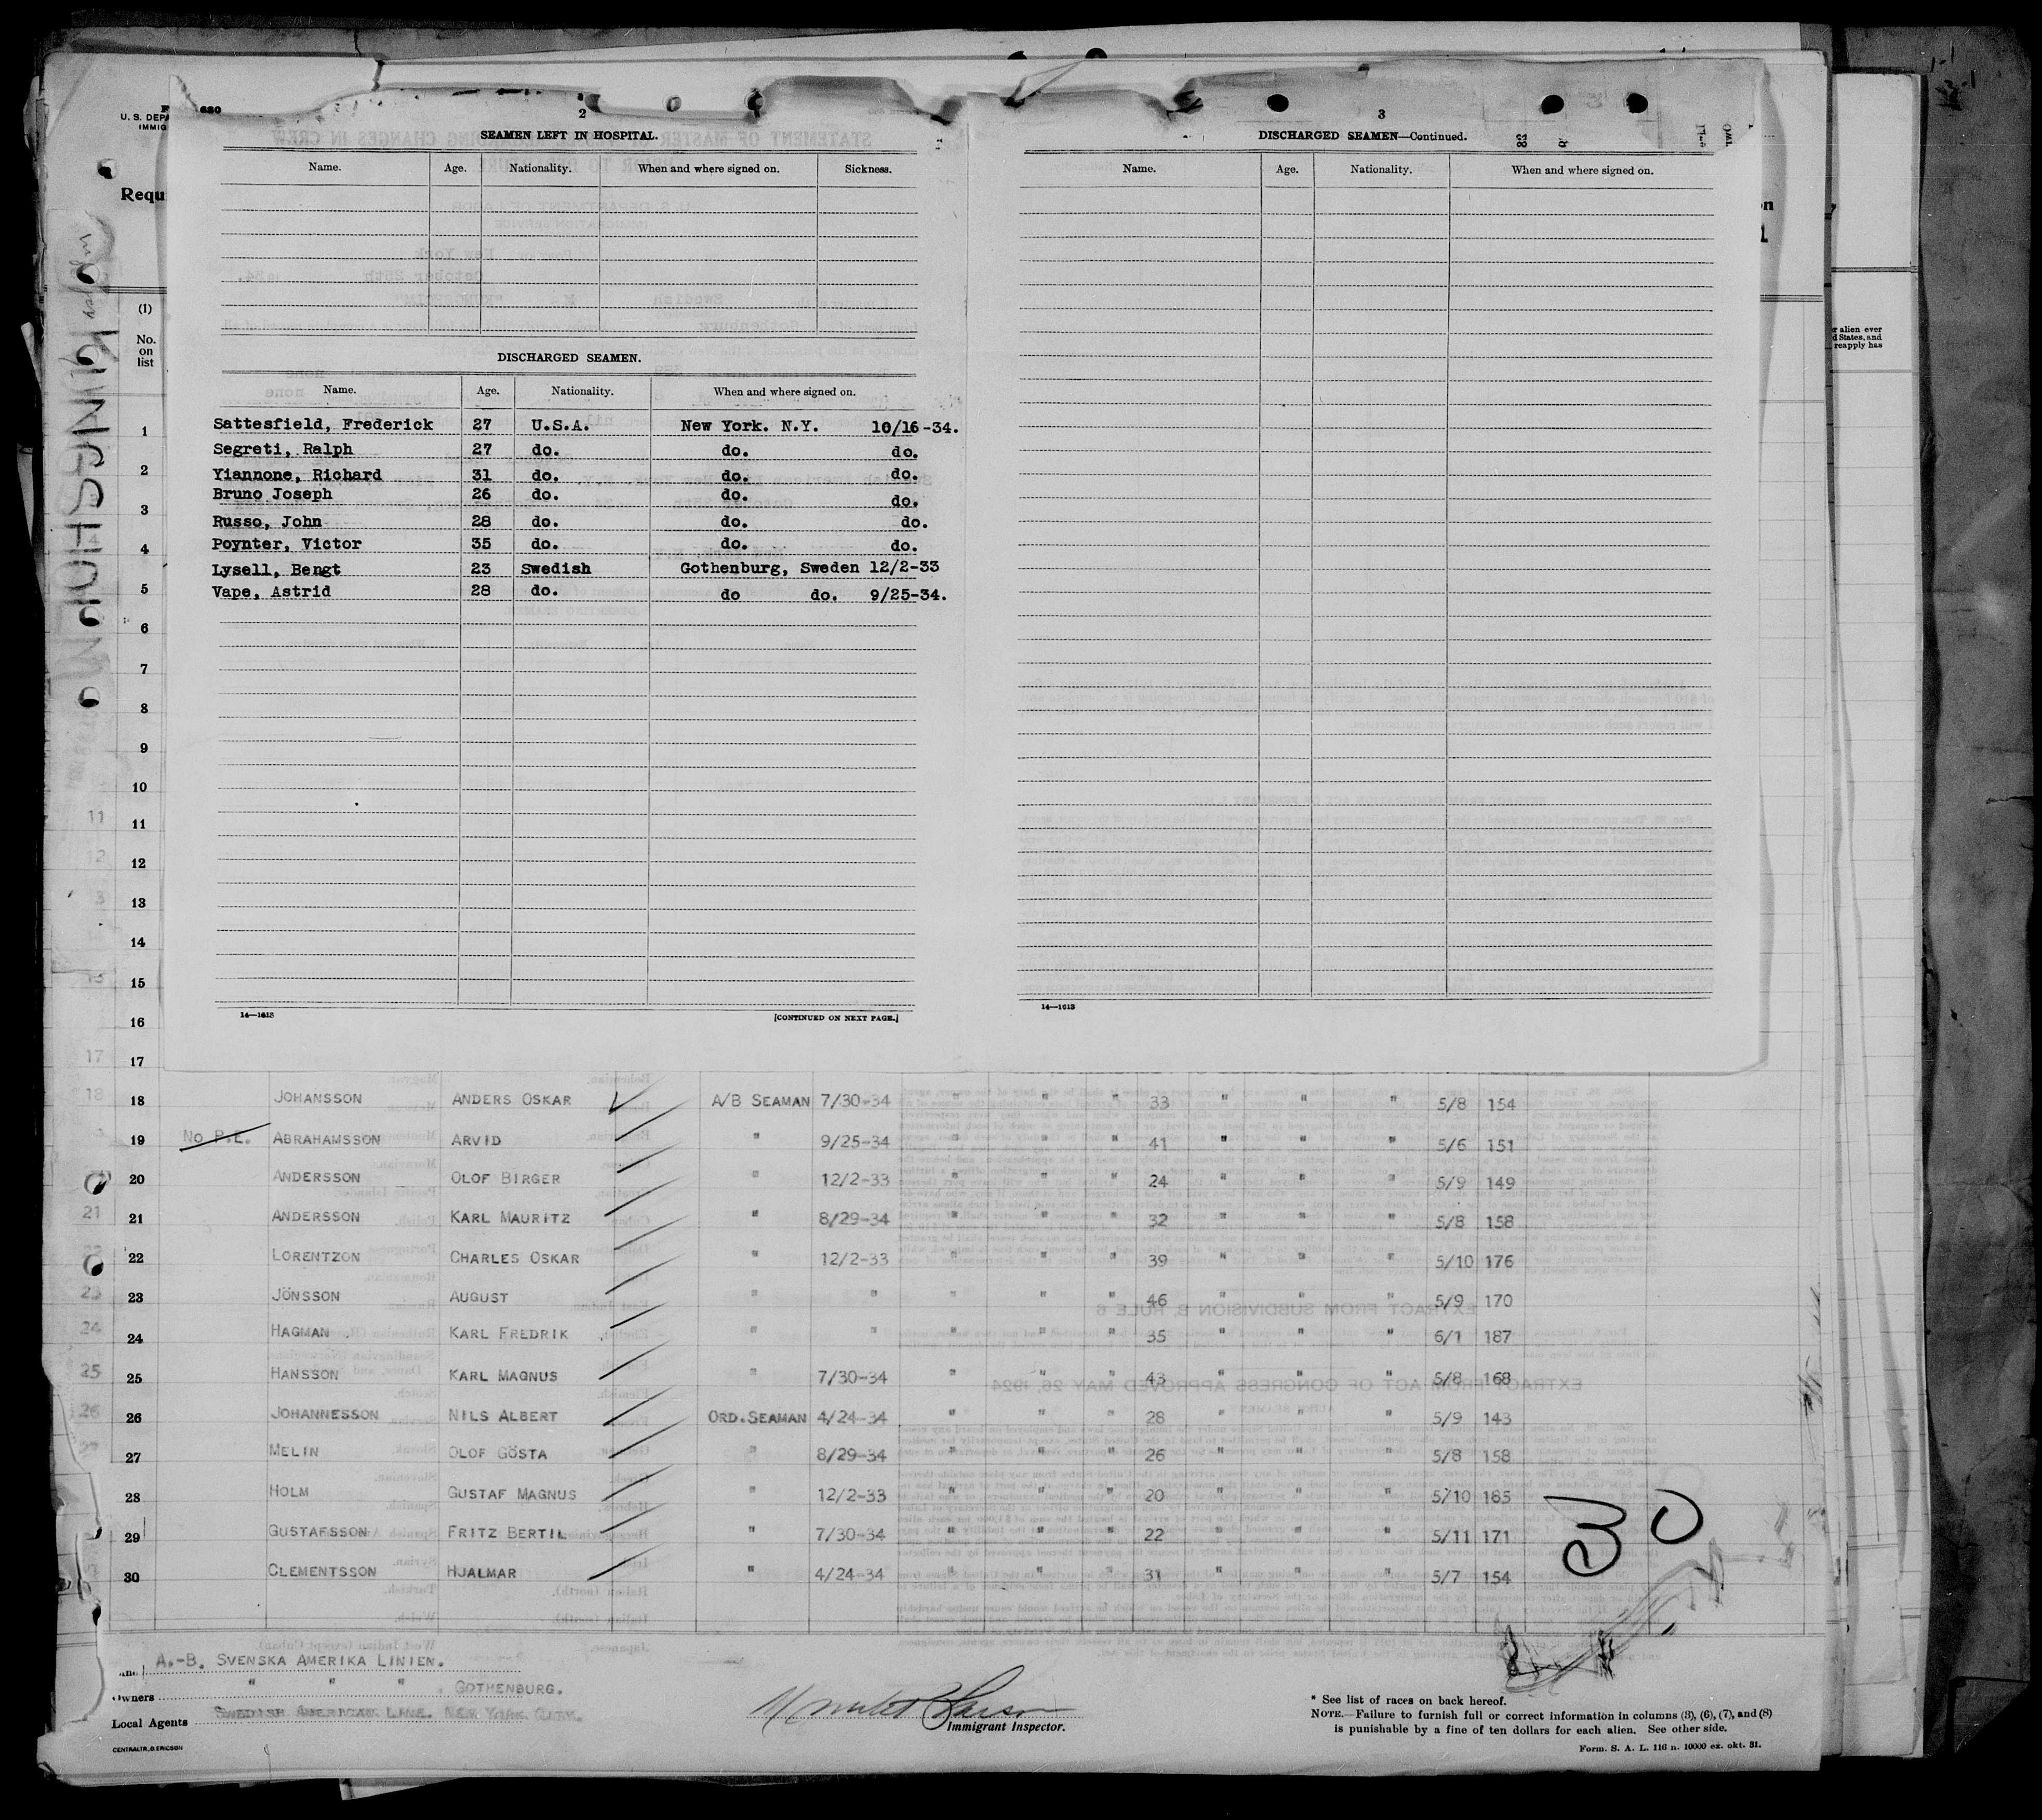 680
U. S. DEPA
IMMIG
Requ
(1)
No.
on
list
KUNGSHOLM
2
SEAMEN LEFT IN HOSPITAL.
Name. Age. Nationality. When and where signed on. Sickness.
DISCHARGED SEAMEN.
Name. Age. Nationality. When and where signed on.
Sattesfield, Frederick 27 U.S.A. New York. N.Y. 10/16-34.
Segreti, Ralph 27 do. do. do.
Yiannone, Richard 31 do. do. do.
Bruno Joseph 26 do. do. do.
Russo, John 28 do. do. do.
Poynter, Victor 35 do. do. do.
Lysell, Bengt 23 Swedish Gothenburg, Sweden 12/2-33
Vape, Astrid 28 do. do do. 9/25-34.
14—1613
[CONTINUED ON NEXT PAGE.]
3
DISCHARGED SEAMEN—Continued.
Name. Age. Nationality. When and where signed on.
14—1613
r alien ever
d States, and
reapply has
1
2
3
4
5
6
7
8
9
10
11
12
13
14
15
16
17
18 JOHANSSON ANDERS OSKAR A/B SEAMAN 7/30-34 " " " 33 " " " 5/8 154
19 No P.E. ABRAHAMSSON ARVID " 9/25-34 " " " 41 " " " 5/6 151
20 ANDERSSON OLOF BIRGER " 12/2-33 " " " 24 " " " 5/9 149
21 ANDERSSON KARL MAURITZ " 8/29-34 " " " 32 " " " 5/8 158
22 LORENTZON CHARLES OSKAR " 12/2-33 " " " 39 " " " 5/10 176
23 JÖNSSON AUGUST " " " " " 46 " " " 5/9 170
24 HAGMAN KARL FREDRIK " " " " " 35 " " " 6/1 187
25 HANSSON KARL MAGNUS " 7/30-34 " " " 43 " " " 5/8 168
26 JOHANNESSON NILS ALBERT ORD.SEAMAN 4/24-34 " " " 28 " " " 5/9 143
27 MELIN OLOF GÖSTA " 8/29-34 " " " 26 " " " 5/8 158
28 HOLM GUSTAF MAGNUS " 12/2-33 " " " 20 " " " 5/10 165
29 GUSTAFSSON FRITZ BERTIL " 7/30-34 " " " 22 " " " 5/11 171
30 CLEMENTSSON HJALMAR " 4/24-34 " " " 31 " " " 5/7 154
30
A.-B. SVENSKA AMERIKA LINIEN.
Owners " " " , GOTHENBURG.
Local Agents SWEDISH AMERICAN LINE. NEW YORK CITY.
CENTRALTR. G. ERICSON
Immigrant Inspector.
* See list of races on back hereof.
NOTE.—Failure to furnish full or correct information in columns (3), (6), (7), and (8)
is punishable by a fine of ten dollars for each alien. See other side.
Form. S. A. L. 116 n. 10000 ex. okt. 31.